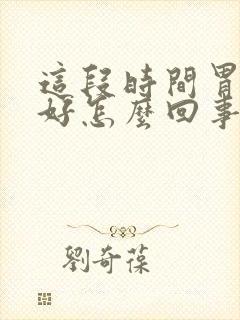 這段時間胃
好怎麼回事
劉奇葆